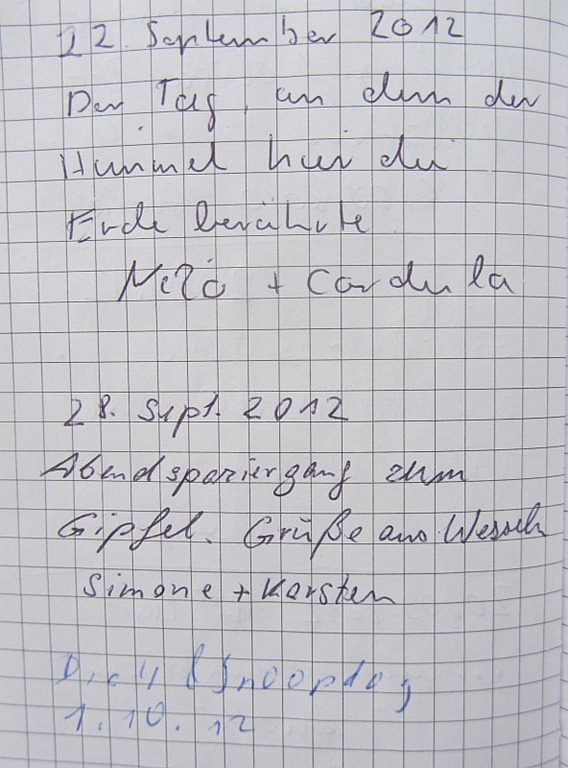 22. September 2012
Der Tag, an dem der
Himmel hier die
Erde berührte
+ Cordula
28. Sept. 2012
Abendspaziergang zum
Gipfel. Grüße aus
Simone + Karsten
& Snoopdog
1.10.12